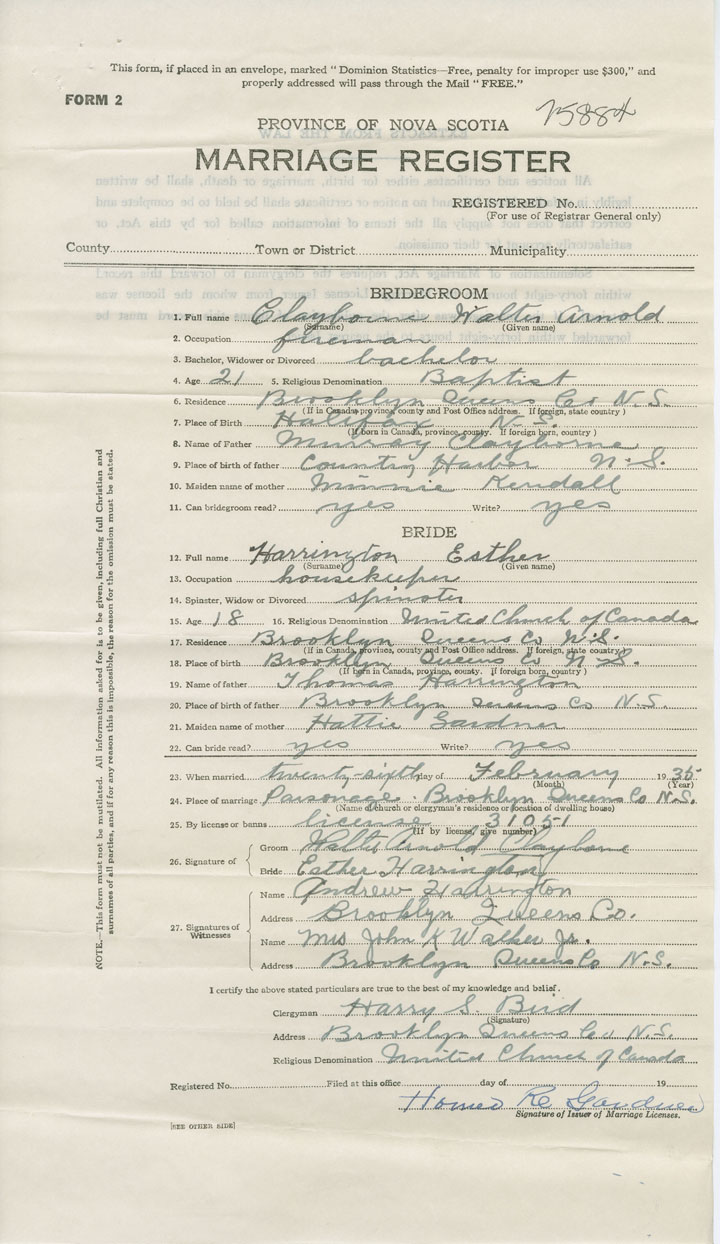 This form, if placed in an envelope, marked "Dominion Statistics—Free, penalty for improper use $300," and
properly addressed will pass through the Mail "FREE."
FORM 2
PROVINCE OF NOVA SCOTIA
MARRIAGE REGISTER
REGISTERED No.
(For use of Registrar General only)
County Town or District Municipality
BRIDEGROOM
1. Full name Clayborne Walter Arnold
(Surname) (Given name)
2. Occupation fireman
3. Bachelor, Widower or Divorced bachelor
4. Age 21 5. Religious Denomination Baptist
6. Residence Brooklyn Queens Co N.S.
(If in Canada, province, county and Post Office address. If foreign, state country)
7. Place of Birth Halifax N.S.
(If born in Canada, province, county. If foreign born, country)
8. Name of Father Murray Clayborne
9. Place of birth of father Country Harbor N.S.
10. Maiden name of mother Minnie Kendall
11. Can bridegroom read? yes Write? yes
BRIDE
12. Full name Harrington Esther
(Surname) (Given name)
13. Occupation housekeeper
14. Spinster, Widow or Divorced spinster
15. Age 18 16. Religious Denomination United Church of Canada
17. Residence Brooklyn Queens Co N.S.
(If in Canada, province, county and Post Office address. If foreign, state country)
18. Place of birth Brooklyn Queens Co N.S.
(If born in Canada, province, county. If foreign born, country)
19. Name of father Thomas Harrington
20. Place of birth of father Brooklyn Queens Co N.S.
21. Maiden name of mother Hattie Gardner
22. Can bride read? yes Write? yes
23. When married twenty-sixth day of February 1935
(Month) (Year)
24. Place of marriage Parsonage. Brooklyn Queens Co N.S.
(Name of church or clergyman's residence or location of dwelling house)
25. By license or banns license 31051
(If by license, give number)
26. Signature of
Groom Walter Arnold Clayborne
Bride Esther Harrington
27. Signatures of Witnesses
Name Andrew Harrington
Address Brooklyn Queens Co.
Name Mrs John K Walker Jr.
Address Brooklyn Queens Co N.S.
I certify the above stated particulars are true to the best of my knowledge and belief.
Clergyman Harry S. Bird
(Signature)
Address Brooklyn Queens Co. N.S.
Religious Denomination United Church of Canada
Registered No. Filed at this office day of 19
Homer
Signature of Issuer of Marriage Licenses.
[SEE OTHER SIDE]
NOTE.—This form must not be mutilated. All information asked for is to be given, including full Christian and
surnames of all parties, and if for any reason this is impossible, the reason for the omission must be stated.